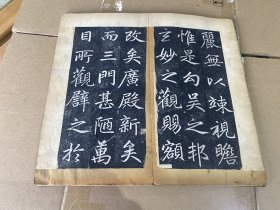 麗無以竦視瞻
惟是勾吳之邦
玄妙之觀賜額
改矣廣殿新矣
而三門甚陋萬
目所觀譬之於